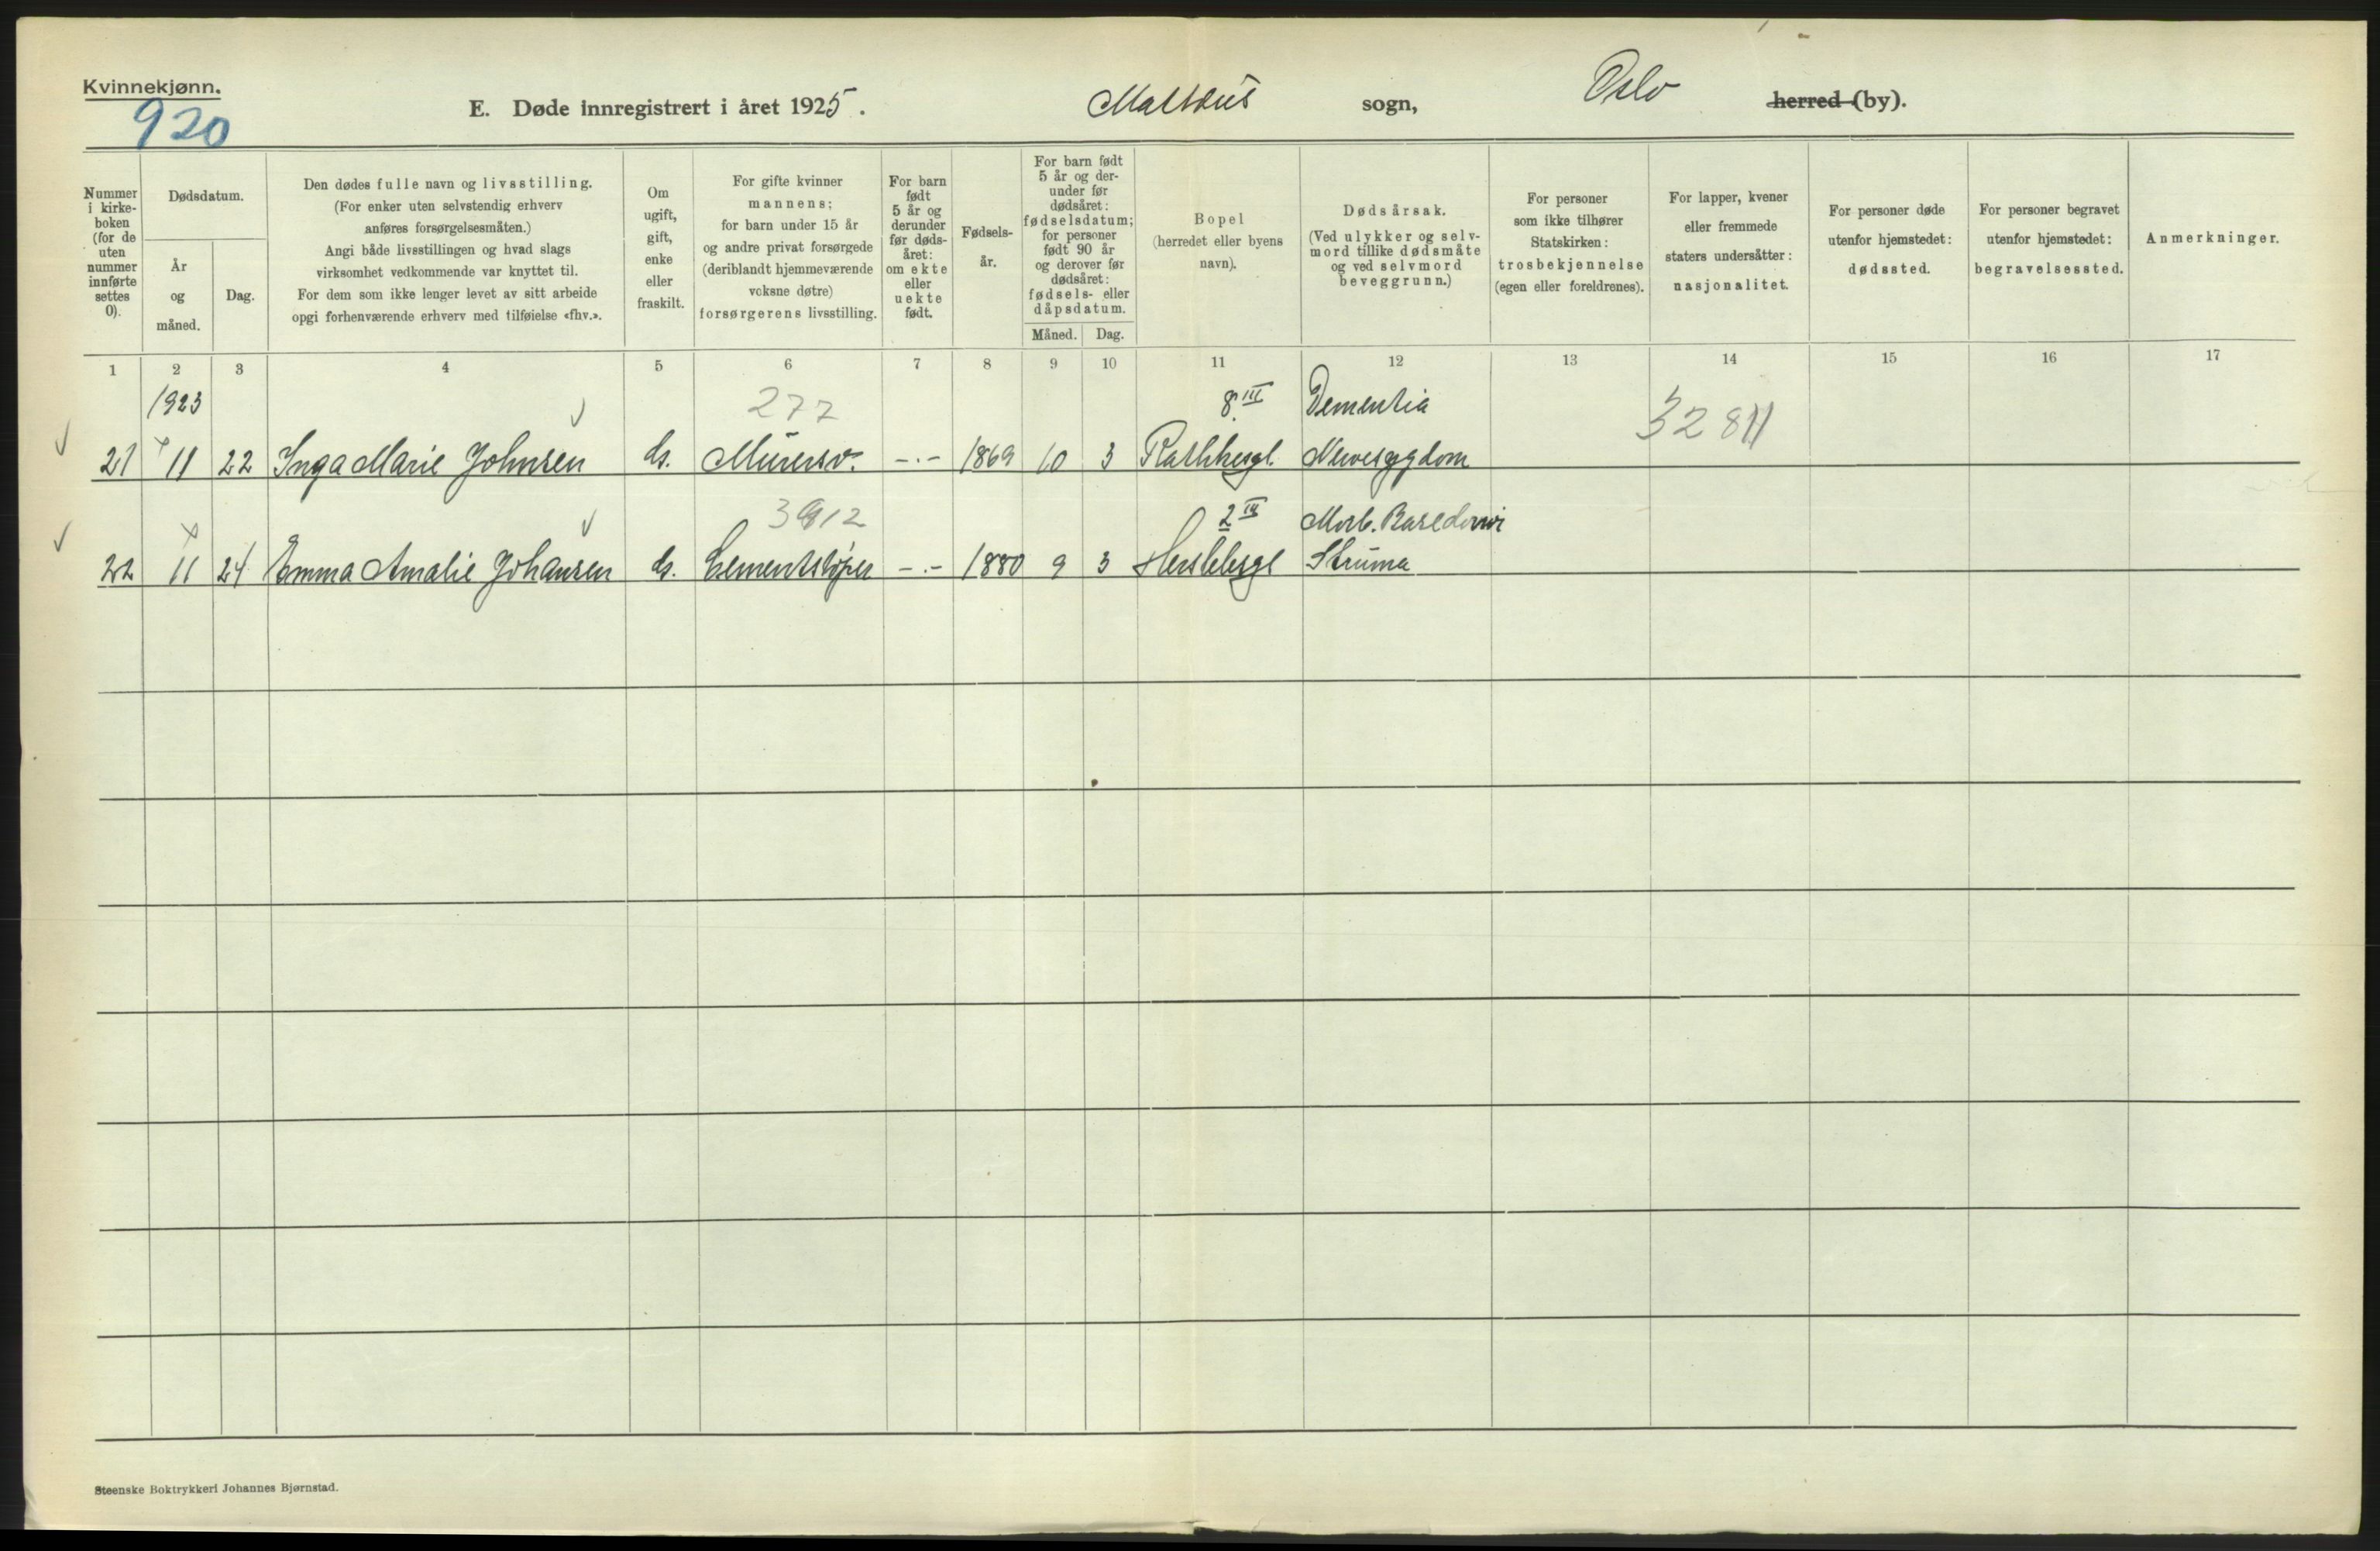 Kvinnekjønn.
920
E. Døde innregistrert i året 1925.
Mattæus sogn, Oslo herred (by).
Nummer i kirke-boken (for de uten nummer innførte settes 0).
Dødsdatum.
År og måned.
Dag.
Den dødes fulle navn og livsstilling.
(For enker uten selvstendig erhverv
anføres forsørgelsesmåten.)
Angi både livsstillingen og hvad slags
virksomhet vedkommende var knyttet til.
For dem som ikke lenger levet av sitt arbeide
opgi forhenværende erhverv med tilføielse «fhv.».
Om ugift, gift, enke eller fraskilt.
For gifte kvinner
mannens;
for barn under 15 år
og andre privat forsørgede
(deriblandt hjemmeværende
voksne døtre)
forsørgerens livsstilling.
For barn født 5 år og derunder før døds-året: om ekte eller uekte født.
Fødsels-år.
For barn født 5 år og der-under før dødsåret: fødselsdatum; for personer født 90 år og derover før dødsåret: fødsels- eller dåpsdatum.
Måned. Dag.
Bopel
(herredet eller byens
navn).
Dødsårsak.
(Ved ulykker og selv-
mord tillike dødsmåte
og ved selvmord
beveggrunn.)
For personer
som ikke tilhører
Statskirken:
trosbekjennelse
(egen eller foreldrenes).
For lapper, kvener
eller fremmede
staters undersåtter:
nasjonalitet.
For personer døde
utenfor hjemstedet:
dødssted.
For personer begravet
utenfor hjemstedet:
begravelsessted.
Anmerkninger.
1 2 3 4 5 6 7 8 9 10 11 12 13 14 15 16 17
1923 277 8 III Dementia
21 11 22 Inga Marie Johnsen G. Murersv. -.- 1869 10 3 Rathkesgt. Nervesygdom 32811
3912 2 III Morb. Basedowi
22 11 24 Emma Amalie Johansen G. Cementstøper -.- 1880 9 3 Herslebsgt Struma
Steenske Boktrykkeri Johannes Bjørnstad.